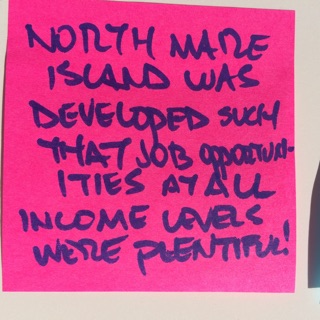 NORTH MARE
ISLAND WAS
DEVELOPED SUCH
THAT JOB OPPORTUN-
ITIES AT ALL
INCOME LEVELS
WERE PLENTIFUL!